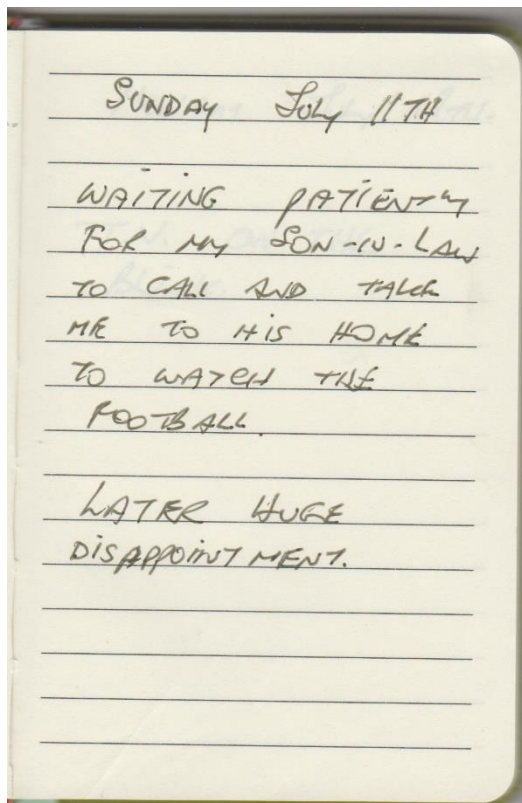 SUNDAY JULY 11TH
WAITING PATIENTLY
FOR MY SON-IN-LAW
TO CALL AND TAKE
ME TO HIS HOME
TO WATCH THE
FOOTBALL.
LATER HUGE
DISAPPOINTMENT.